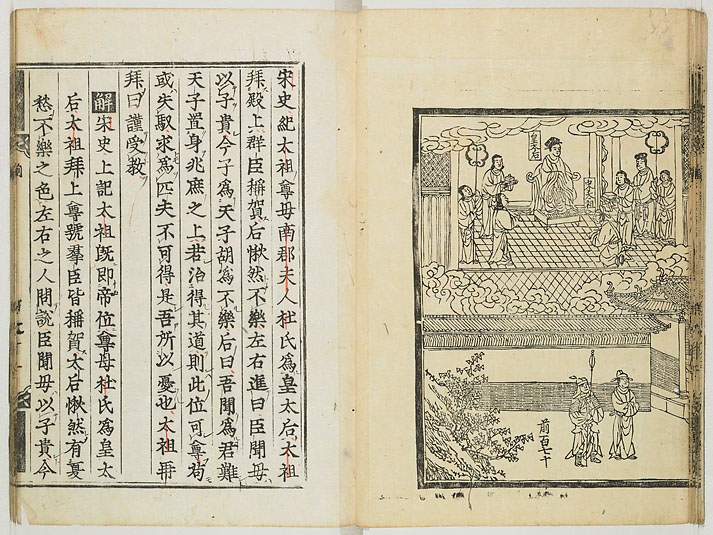 皇太后
宋太祖
前百七十
宋史紀太祖尊母南郡夫人杜氏爲皇太后太祖
拜殿上群臣稱賀后愀然不樂左右進曰臣聞母
以子貴今子爲天子胡爲不樂后曰吾聞爲君難
天子置身兆庶之上若治得其道則此位可尊苟
或失馭求爲匹夫不可得是吾所以憂也太祖再
拜曰謹受教
解宋史上記太祖旣即帝位尊母杜氏爲皇太
后太祖拜上尊號羣臣皆稱賀太后愀然有憂
愁不樂之色左右之人問說臣聞母以子貴今